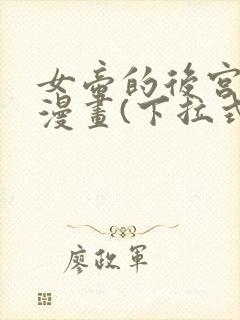 女帝的後宮
漫畫(下拉式
廖政軍